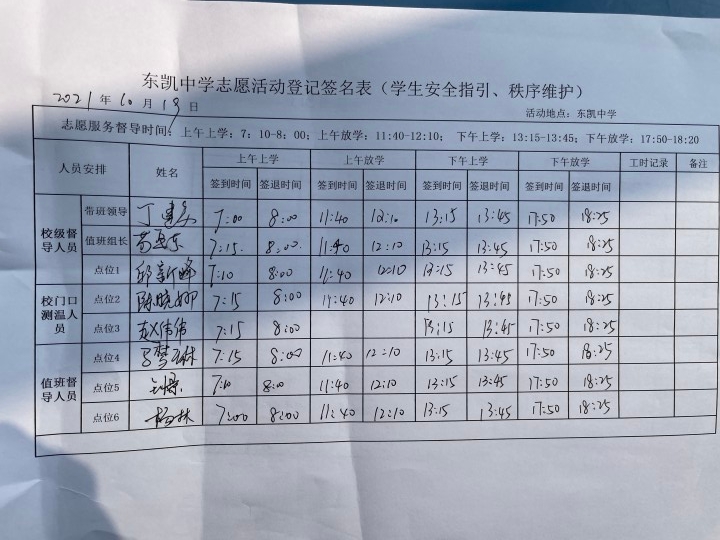 东凯中学志愿活动登记签名表（学生安全指引、秩序维护）
2021 年 10 月 19 日 活动地点：东凯中学
志愿服务督导时间：上午上学：7：10-8：00；上午放学：11:40-12:10； 下午上学：13:15-13:45；下午放学：17:50-18:20
人员安排 姓名 上午上学 上午放学 下午上学 下午放学 工时记录 备注
签到时间 签退时间 签到时间 签退时间 签到时间 签退时间 签到时间 签退时间
校级督导人员 带班领导 丁 7:00 8:00 11:40 12:10 13:15 13:45 17:50 18:25
值班组长 7:15 8:00 11:40 12:10 13:15 13:45 17:50 18:25
点位1 邱新峰 7:10 8:00 11:40 12:10 13:15 13:45 17:50 18:25
校门口测温人员 点位2 陈晓娜 7:15 8:00 11:40 12:10 13:15 13:45 17:50 18:25
点位3 赵伟伟 7:15 8:00 13:15 13:45 17:50 18:25
值班督导人员 点位4 7:15 8:00 11:40 12:10 13:15 13:45 17:50 18:25
点位5 7:10 8:00 11:40 12:10 13:15 13:45 17:50 18:25
点位6 杨林 7:00 8:00 11:40 12:10 13:15 13:45 17:50 18:25